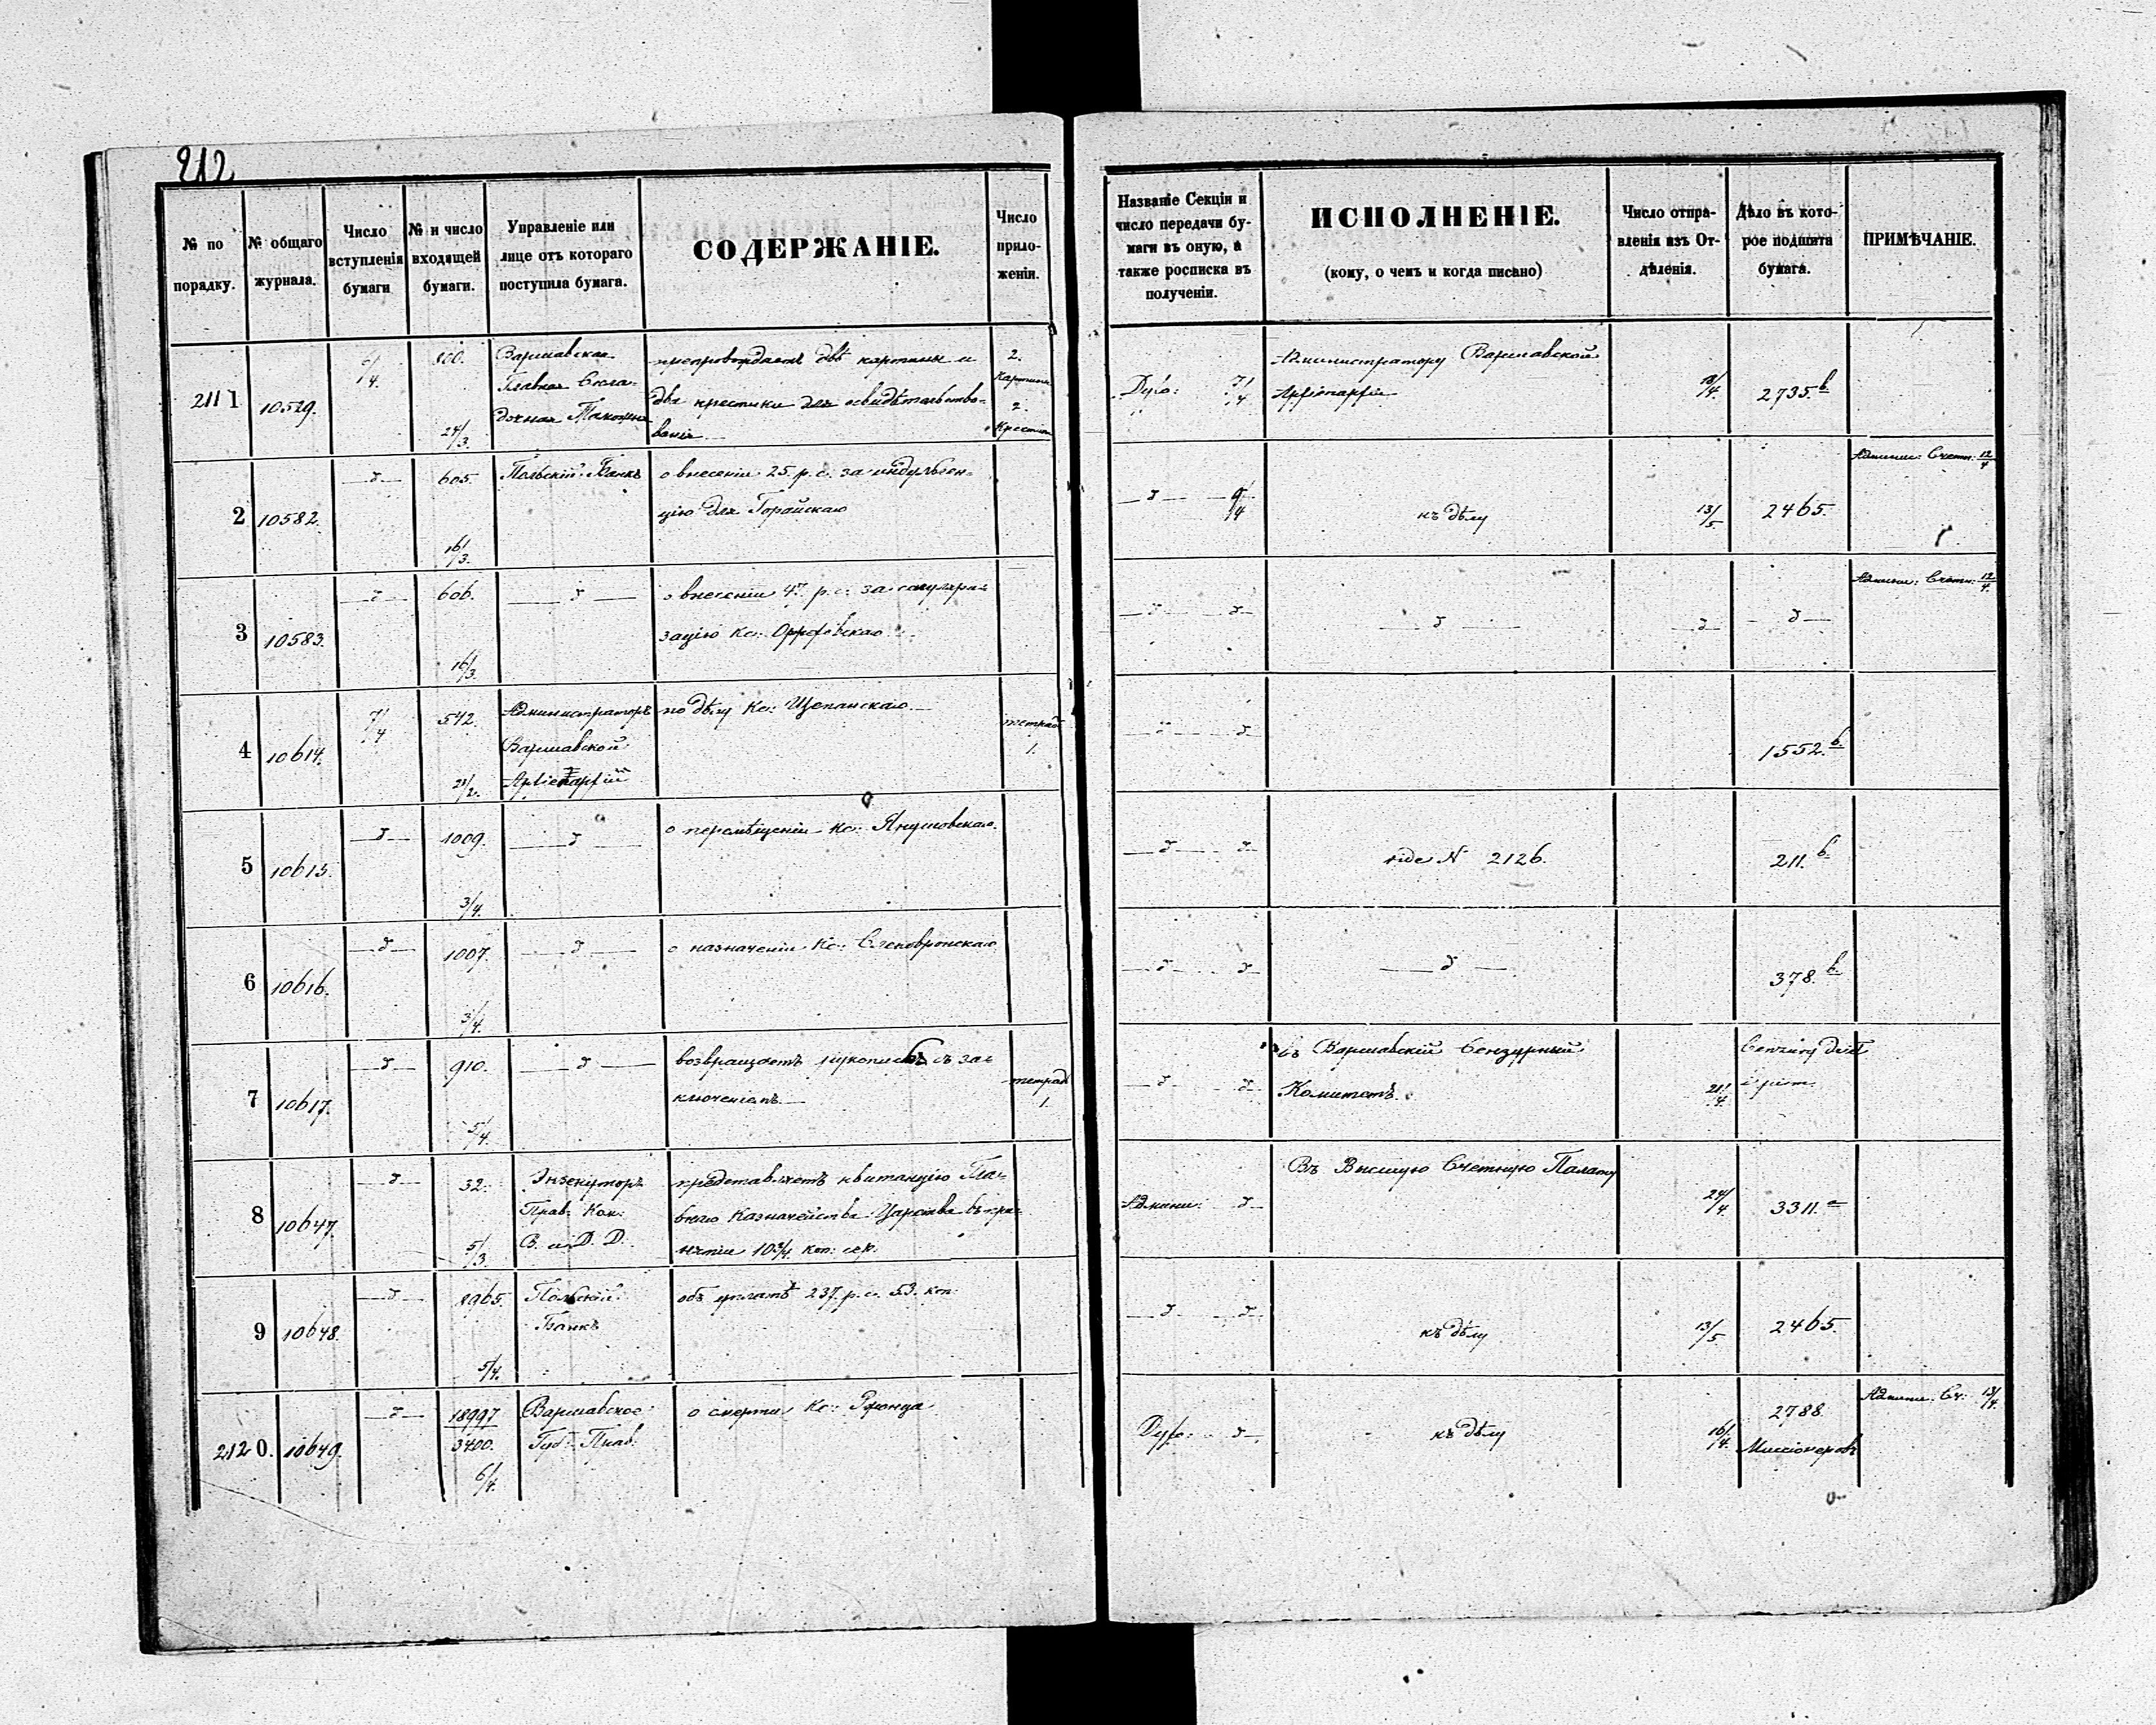 212
№ по порядку.
№ общаго журнала.
Число вступленія бумаги
№ и число входящей бумаги.
Управленіе или лице отъ котораго поступила бумага.
СОДЕРЖАНІЕ.
Число приложеній.
Названіе Секціи и число передачи бумаги въ оную, а также росписка въ полученіи.
ИСПОЛНЕНІЕ.
(кому, о чемъ и когда писано)
Число отправленія изъ Отдѣленія.
Дѣло въ которое подшита бумага.
ПРИМѢЧАНІЕ.
2111
10529.
Варшавская
Главная Скла-
дочная Таможня
24/3.
препровождаетъ двѣ картины и
два крестика для освидѣтельство-
ванія
2.
Картины
2.
Крестика
Дух: 7/4
Администратору Варшавской
Архіепархіи
18/4
2735.в
2
10582.
—д—
605.
16/3.
Польскій Банкъ
о внесеніи 25. р. с. за индульген-
цію для Горайскаго
—д— 9/4
къ дѣлу
13/5
2465.
Админи: Счетн: 12/4
3
10583.
—д—
606.
16/3.
—д—
о внесеніи 47 р. с. за секуляри-
зацію Кс:
—д— д—
—д—
—д—
—д—
Админи: Счетн: 12/4.
4
10614.
7/4
542.
Администраторъ
Варшавской
Архіепархіи
по дѣлу Кс: Щепанскаго
тетрадь
1.
—д— д—
1552.в
5
10615.
—д—
1009.
3/4.
—д—
о перемѣщеніи Кс: Янушовскаго.
—д— д—
vide N 2126.
211.в
6
10616.
—д—
1007.
3/4.
—д—
о назначеніи Кс: Сченовронскаго
—д— д—
—д—
378.в
7
10617.
—д—
910.
5/4.
—д—
возвращаетъ рукопись съ за-
ключеніемъ.
тетрадь
1.
—д— д—
въ Варшавскій Цензурный
Комитетъ.
21/4.
Cenzury dzieł
i pism
8
10647.
—д—
32.
5/3.
Экзекуторъ
Прав: Ком:
В. и Д. Д.
представляетъ квитанцію Гла-
внаго Казначейства Царства въ при-
нятіи 10¾ коп: сер.
Админи: д—
Въ Высшую Счетную Палату
24/4.
3311.а
9
10648.
—д—
8965.
5/4.
Польскій
Банкъ
объ уплатѣ 237. р. с. 53. коп.
—д— д—
къ дѣлу
13/5
2465.
2120.
10649.
—д—
18997
3400.
6/4.
Варшавское
Губ: Прав:
о смерти Кс:
Дух: д—
къ дѣлу
16/4.
2788.
Миссіонеровъ
Админи. Сч: 13/4.